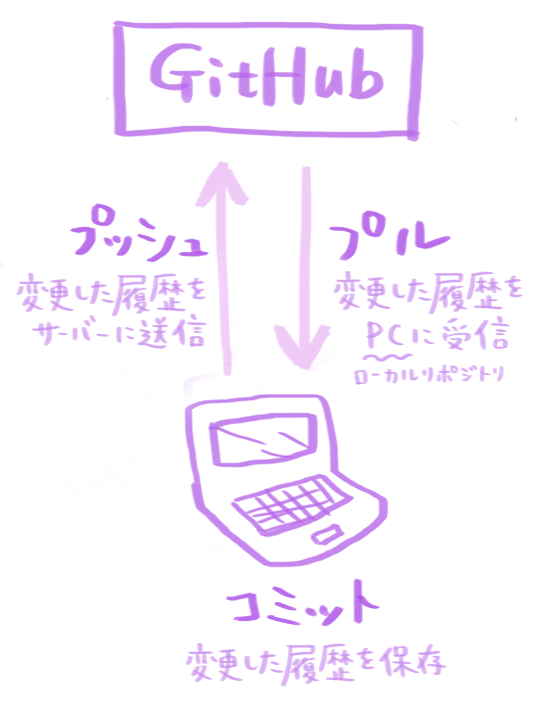 GitHub
プッシュ
変更した履歴を
サーバーに送信
プル
変更した履歴を
PCに受信
ローカルリポジトリ
コミット
変更した履歴を保存